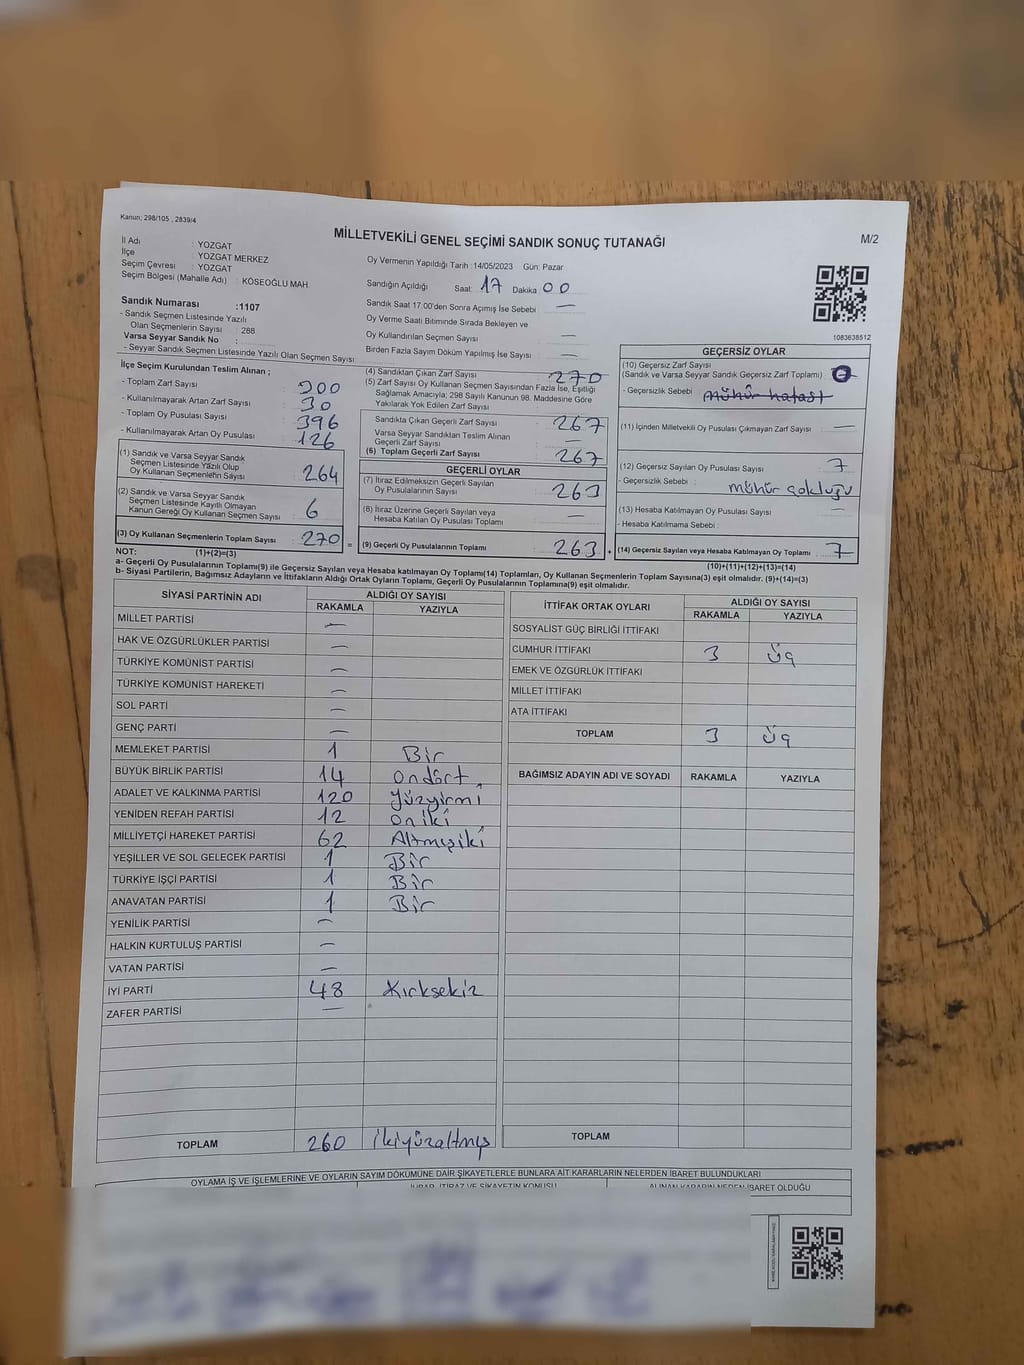 Kanun; 298/105 , 2839/4
MİLLETVEKİLİ GENEL SEÇİMİ SANDIK SONUÇ TUTANAĞI
M/2
İl Adı : YOZGAT
İlçe : YOZGAT MERKEZ
Seçim Çevresi : YOZGAT
Seçim Bölgesi (Mahalle Adı) : KÖSEOĞLU MAH.
Oy Vermenin Yapıldığı Tarih :14/05/2023 Gün: Pazar
Sandığın Açıldığı Saat: 17 Dakika 00
Sandık Numarası :1107
- Sandık Seçmen Listesinde Yazılı
Olan Seçmenlerin Sayısı : 288
Varsa Seyyar Sandık No :
- Seyyar Sandık Seçmen Listesinde Yazılı Olan Seçmen Sayısı :
Sandık Saat 17.00'den Sonra Açımış İse Sebebi : —
Oy Verme Saati Bitiminde Sırada Bekleyen ve
Oy Kullandırılan Seçmen Sayısı : —
Birden Fazla Sayım Döküm Yapılmış İse Sayısı : —
1083638512
İlçe Seçim Kurulundan Teslim Alınan ;
- Toplam Zarf Sayısı : 300
- Kullanılmayarak Artan Zarf Sayısı : 30
- Toplam Oy Pusulası Sayısı : 396
- Kullanılmayarak Artan Oy Pusulası : 126
(1) Sandık ve Varsa Seyyar Sandık
Seçmen Listesinde Yazılı Olup
Oy Kullanan Seçmenlerin Sayısı : 264
(2) Sandık ve Varsa Seyyar Sandık
Seçmen Listesinde Kayıtlı Olmayan
Kanun Gereği Oy Kullanan Seçmen Sayısı : 6
(3) Oy Kullanan Seçmenlerin Toplam Sayısı : 270 =
(4) Sandıktan Çıkan Zarf Sayısı : 270
(5) Zarf Sayısı Oy Kullanan Seçmen Sayısından Fazla İse, Eşitliği
Sağlamak Amacıyla; 298 Sayılı Kanunun 98. Maddesine Göre
Yakılarak Yok Edilen Zarf Sayısı :
Sandıkta Çıkan Geçerli Zarf Sayısı : 267
Varsa Seyyar Sandıktan Teslim Alınan
Geçerli Zarf Sayısı : —
(6) Toplam Geçerli Zarf Sayısı : 267
GEÇERLİ OYLAR
(7) İtiraz Edilmeksizin Geçerli Sayılan
Oy Pusulalarının Sayısı : 263
(8) İtiraz Üzerine Geçerli Sayılan veya
Hesaba Katılan Oy Pusulası Toplamı : —
(9) Geçerli Oy Pusulalarının Toplamı : 263 +
GEÇERSİZ OYLAR
(10) Geçersiz Zarf Sayısı
(Sandık ve Varsa Seyyar Sandık Geçersiz Zarf Toplamı) :
- Geçersizlik Sebebi : mühür hatası
(11) İçinden Milletvekili Oy Pusulası Çıkmayan Zarf Sayısı : —
(12) Geçersiz Sayılan Oy Pusulası Sayısı : 7
- Geçersizlik Sebebi : mühür çokluğu
(13) Hesaba Katılmayan Oy Pusulası Sayısı : —
- Hesaba Katılmama Sebebi :
(14) Geçersiz Sayılan veya Hesaba Katılmayan Oy Toplamı : 7
NOT: (1)+(2)=(3)
(10)+(11)+(12)+(13)=(14)
a- Geçerli Oy Pusulalarının Toplamı(9) ile Geçersiz Sayılan veya Hesaba katılmayan Oy Toplamı(14) Toplamları, Oy Kullanan Seçmenlerin Toplam Sayısına(3) eşit olmalıdır. (9)+(14)=(3)
b- Siyasi Partilerin, Bağımsız Adayların ve İttifakların Aldığı Ortak Oyların Toplamı, Geçerli Oy Pusulalarının Toplamına(9) eşit olmalıdır.
SİYASİ PARTİNİN ADI
ALDIĞI OY SAYISI
RAKAMLA YAZIYLA
MİLLET PARTİSİ —
HAK VE ÖZGÜRLÜKLER PARTİSİ —
TÜRKİYE KOMÜNİST PARTİSİ —
TÜRKİYE KOMÜNİST HAREKETİ —
SOL PARTİ —
GENÇ PARTİ —
MEMLEKET PARTİSİ 1 Bir
BÜYÜK BİRLİK PARTİSİ 14 ondört
ADALET VE KALKINMA PARTİSİ 120 Yüzyirmi
YENİDEN REFAH PARTİSİ 12 oniki
MİLLİYETÇİ HAREKET PARTİSİ 62 Altmışiki
YEŞİLLER VE SOL GELECEK PARTİSİ 1 Bir
TÜRKİYE İŞÇİ PARTİSİ 1 Bir
ANAVATAN PARTİSİ 1 Bir
YENİLİK PARTİSİ —
HALKIN KURTULUŞ PARTİSİ —
VATAN PARTİSİ —
İYİ PARTİ 48 Kırksekiz
ZAFER PARTİSİ —
TOPLAM 260 İkiyüzaltmış
İTTİFAK ORTAK OYLARI
ALDIĞI OY SAYISI
RAKAMLA YAZIYLA
SOSYALİST GÜÇ BİRLİĞİ İTTİFAKI
CUMHUR İTTİFAKI 3 üç
EMEK VE ÖZGÜRLÜK İTTİFAKI
MİLLET İTTİFAKI
ATA İTTİFAKI
TOPLAM 3 üç
BAĞIMSIZ ADAYIN ADI VE SOYADI RAKAMLA YAZIYLA
TOPLAM
OYLAMA İŞ VE İŞLEMLERİNE VE OYLARIN SAYIM DÖKÜMÜNE DAİR ŞİKAYETLERLE BUNLARA AİT KARARLARIN NELERDEN İBARET BULUNDUKLARI
İHBAR, İTİRAZ VE ŞİKAYETİN KONUSU
ALINAN KARARIN NEDEN İBARET OLDUĞU